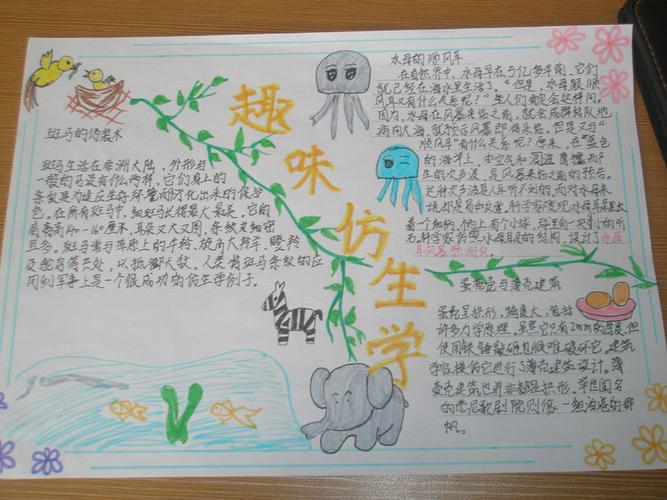 趣味仿生学
斑马的伪装术
斑马生活在非洲大陆，外形与
一般的马没有什么两样，它们身上的
条纹是为适应生存环境而衍化出来的保护
色。在所有斑马中，细斑马长得最大最美。它的
肩高140-160厘米，耳朵又大又圆，条纹又细密
且多。斑马常与草原上的牛羚、旋角大羚羊、瞪羚
及鸵鸟等共处，以抵御天敌。人类将斑马条纹的应
用到军事上是一个很成功的仿生学例子。
水母的顺风耳
在自然界中，水母早在5亿多年前，它们
就已经在海水里生活了。"但是，水母跟顺
风耳又有什么关系呢？"人们肯定会这样问。
因为，水母在风暴来临之前，就会成群结队地
游向大海，就预示风暴即将来临。但是又与"
顺风耳"有什么关系呢？原来，在蓝色
的海洋上，由空气和波浪摩擦而产
生的次声波，是风暴来临之前的预告。
这种次声波人耳听不到的，而对水母来
说却是易如反掌。科学家发现，水母耳里长
着一个细柄，柄上有个小球，球里有一块小小的听
石。科学家仿照水母耳朵的结构，设计了水母
耳风暴预测仪。
蛋壳与薄壳建筑
蛋壳呈拱形，跨度大，包括
许多力学原理。虽然它只有2mm的厚度，但
使用铁锤敲砸也很难破坏它。建筑
学家模仿它进行了薄壳建筑设计。薄
壳建筑也并非都是拱形，举世闻名
的悉尼歌剧院则像一组泊港的群
帆。